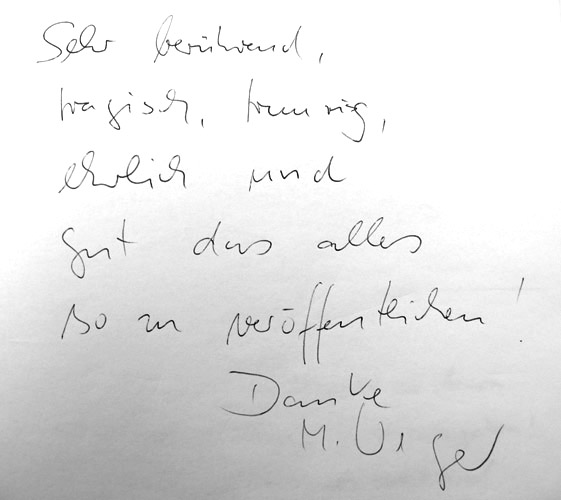 Sehr berührend,
tragisch, traurig,
ehrlich und
gut das alles
so zu veröffentlichen!
Danke
M.